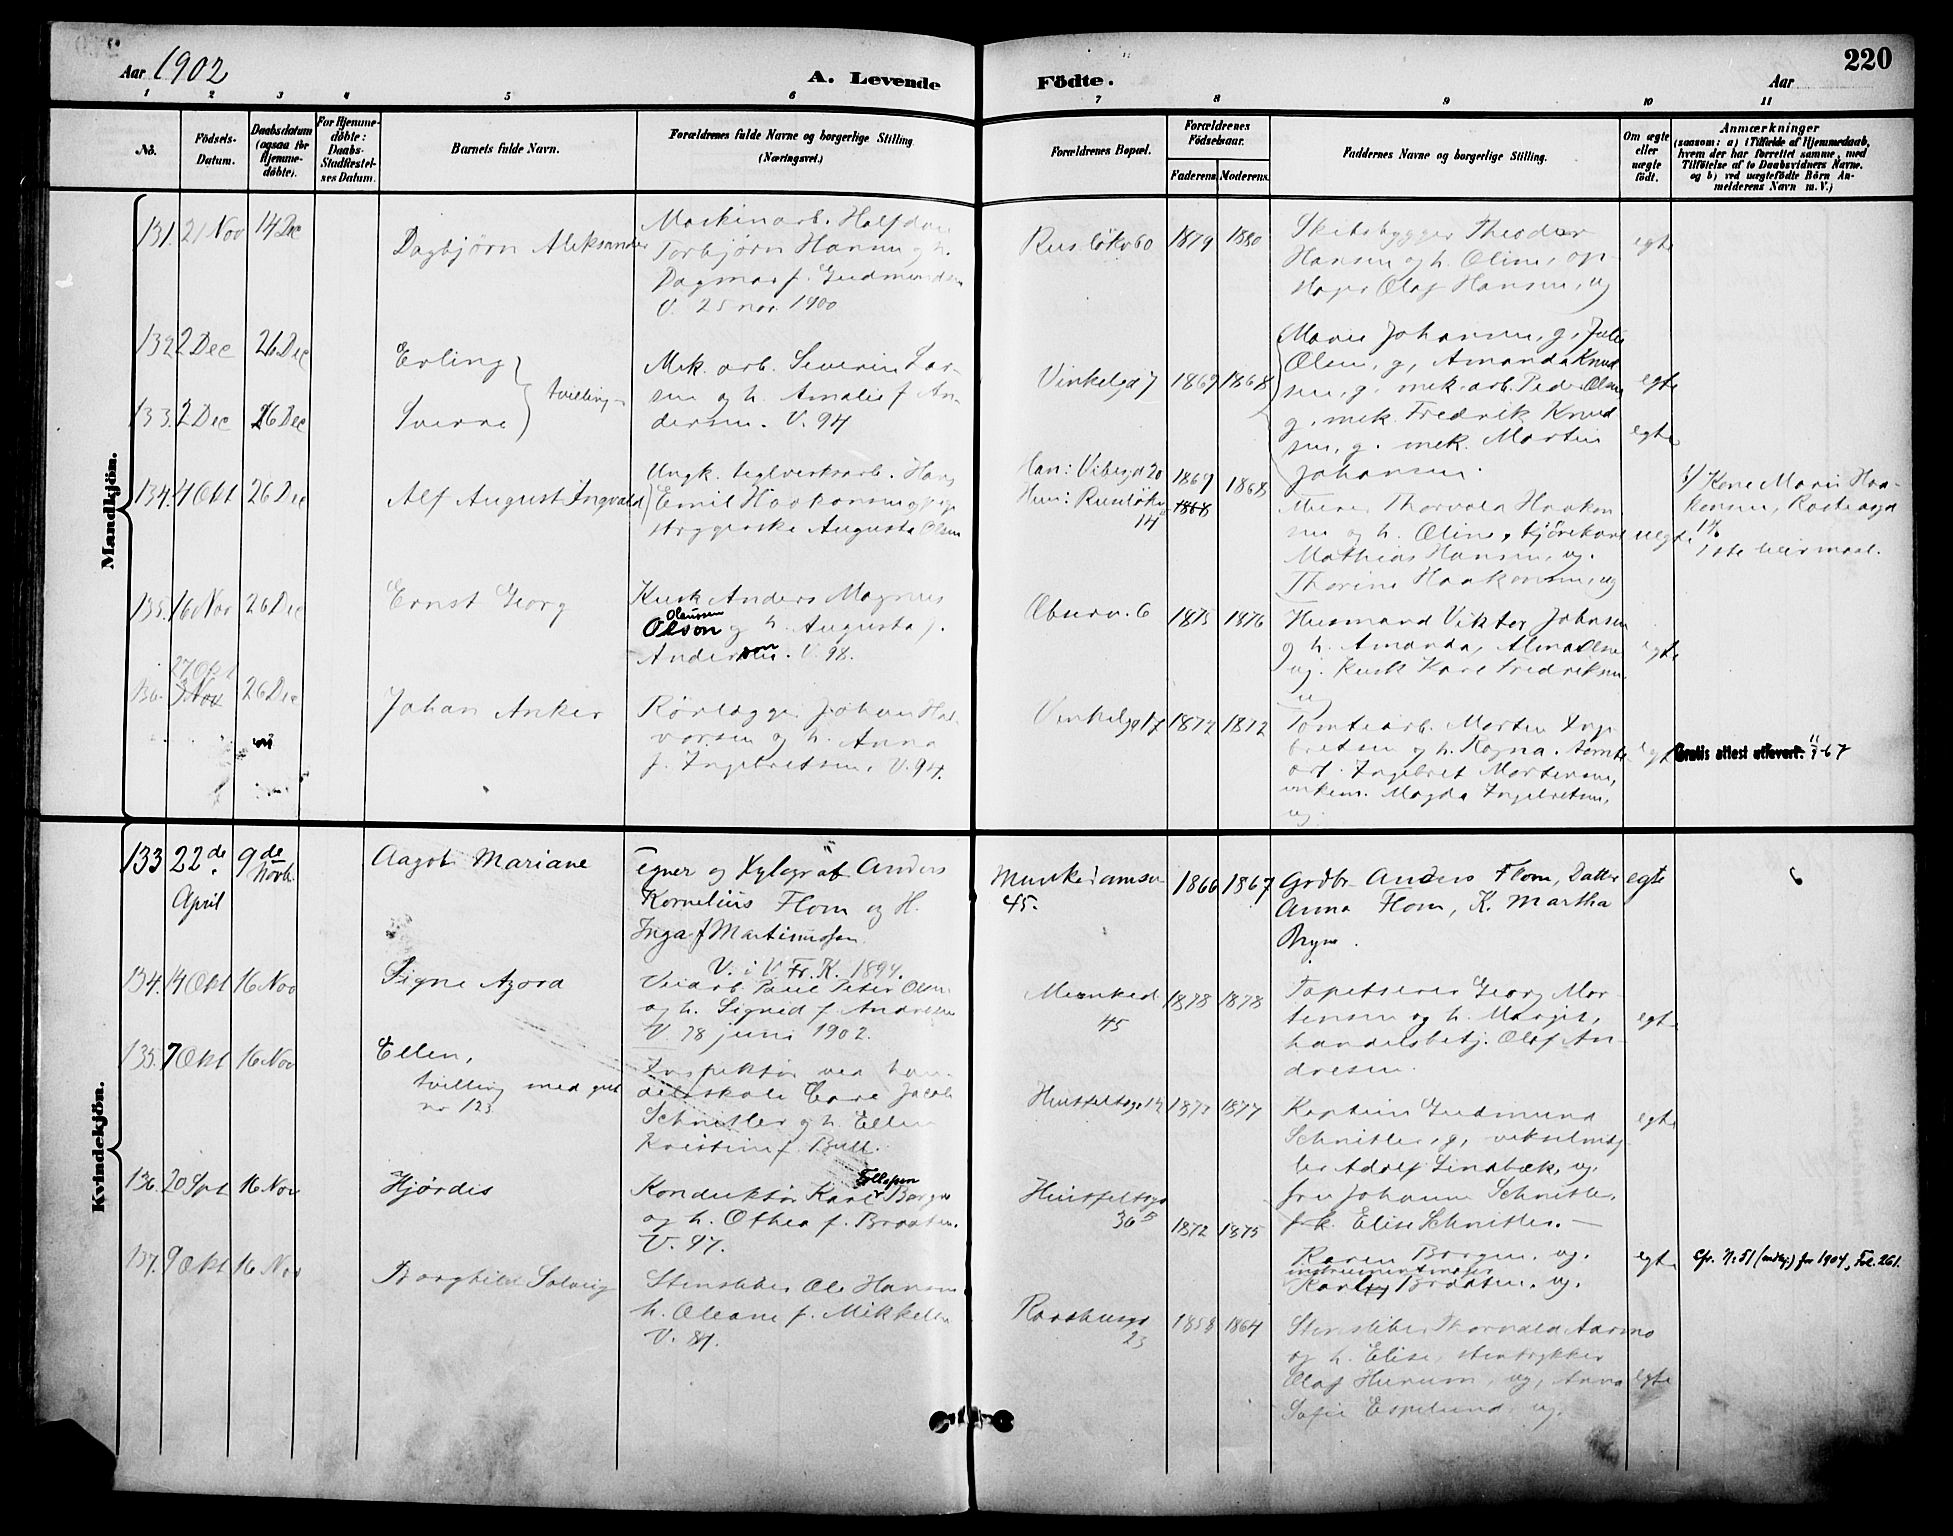 220
Aar 1902
A. Levende
Födte.
Aar
1 2 3 4 5 6 7 8 9 10 11
No.
Födsels-
Datum.
Daabsdatum
(ogsaa for
Hjemme-
döbte).
For Hjemme-
döbte:
Daabs-
Stadfæstel-
ses Datum.
Barnets fulde Navn.
Forældrenes fulde Navne og borgerlige Stilling
(Næringsvei.)
Forældrenes Bopæl.
Forældrenes
Födselsaar.
Faderens. Moderens.
Faddernes Navne og borgerlige Stilling.
Om ægte
eller
uægte
födt.
Anmærkninger
(saasom: a) i Tilfælde af Hjemmedaab,
hvem der har forrettet samme, med
Tilföielse af to Daabsvidners Navne,
og b) ved uægtefödte Börn An-
melderens Navn m. V.)
Mandkjön.
131. 21 Nov 14 Dec
Dagbjørn Aleksander
Maskinarb. Halfdan
Torbjørn Hansen og h.
Dagmar f. Gudmundsen
V. 25 nov. 1900
Rusløkv 60
1879 1880
Skibsbygger Theodor
Hansen og h. Oline, op-
Olaf Hansen, ug
egte
132 2 Dec 26 Dec
Erling
133. 2 Dec 26 Dec
Sverre
tvilling
Mek. arb. Severin Lar-
sen og h. Amalie f. An-
dersen. V. 94
Vinkelgd 7
1869 1868
Marie Johansen, g, Julie
Olsen, g, Amanda Knud
sen, g. mek. arb. Peder Olsen
g. mek. Fredrik Knud
sen, g. mek. Martin
Johansen.
egte
egte
134. 4 Okt 26 Dec
Alf August Ingvald
Ungk. teglverksarb. Hans
Emil Haakonsen og pige
strygerske Augusta Olsen
Han: Vibesgd 20
Hun: Rusløkv
14
1869 1868
1868
Murer Thorvald Haakon
sen og h. Oline, kjørekarl
Mathias Hansen, ug.
Thorine Haakonsen, ug
uegte
Kone Marie Haa-
konsen,
1ste leiermaal.
135. 16 Nov 26 Dec
Ernst Georg
Kusk Anders Magnus
Olaussen
Olson og h. Augusta f.
Anderson. V. 98.
6
1875 1876
Husmand Viktor Johnsen
og h. Amanda, Alma Olsen
ug. Kusk Karl Fredriksen,
ug
egte
27 Okt
136. 3 Nov 26 Dec
Johan Anker
Rørlægger Johan Hal-
vorsen og h. Anna
f. Ingebretsen. V. 94.
Vinkelgd 17
1872 1872
Tomtearb. Morten Inge
bretsen og h. Ragna. tomte
arb. Ingebret Mortensen,
enkem. Magda Ingebretsen,
ug.
egte
Gratis attest utlevert. 11/9-67
Kvindekjön.
133 22de 9de
April Novb.
Aagot Mariane
Tegner og Xylograf Anders
Kornelius Flom og H.
Inga f Martinussen.
V. i V Fr. K. 1894.
Munkedamsv
45.
1866 1867
Grdbr. Anders Flom, Datter
Anna Flom, K. Martha
Bryn.
egte
6
134. 14 Okt 16 Nov
Signe Azora
Veiarb. Paul Peter Olsen
og h. Signed f. Andresen
V. 28 juni 1902.
Munked
45
1878 1878
Tapetserer Georg Mor-
tensen og h. Margit,
handelsbetj. Olaf An-
dresen.
egte
135. 7 Okt 16 Nov
Ellen,
tvilling med gut
nr 123
Inspektør ved han-
delsskole Carl Jacob
Schnitler og h. Ellen
Kristine f. Bull.
Huitfeltsgd 12
1877
Kaptein Gudmund
Schnitler, g, vekselmeg
ler Adolf Lindbæk, ug.
fru Johanne Schnitler,
frk. Elise Schnitler. —
egte
136. 20 Spt 16 Nov
Hjørdis
Tollefsen
Konduktør Karl Borgen
og h. Othea f. Braaten.
V. 97.
Huitfeltsgd
36 B
1872 1875
Karen Borgen, ug.
instrumentmager
Karl Braaten, ug.
egte
Cfr. No 51 (mdkj.) for 1904, Fol. 261.
137. 9 Okt 16 Nov
Borghild Solveig
Stensliber Ole Hansen
h. Oleane f. Mikkelsen
V. 84.
Raadhusgd
23
1858 1864
Stensliber Thorvald Aarmo
og h. Elise, stentrykker
Olaf Hurum, ug, Anna
Sofie Espelund, ug.
egte